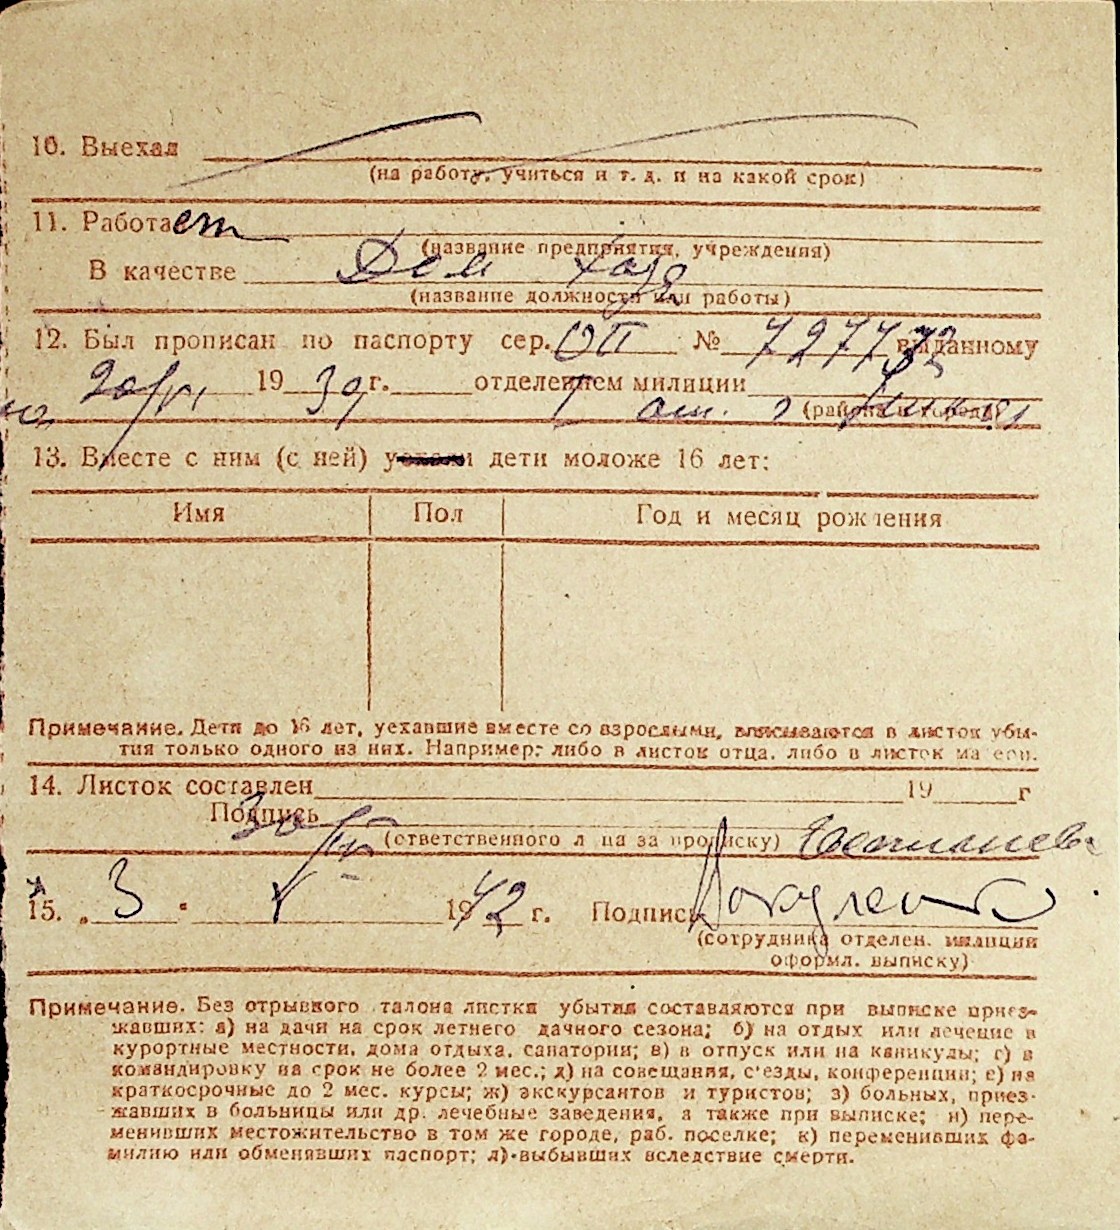 10. Выехал
(на работу, учиться и т. д. и на какой срок)
11. Работает
(название предприятия, учреждения)
В качестве Дом хоз
(название должности или работы)
12. Был прописан по паспорту сер. ОП № 727732 выданному
19 39 г. отделением милиции
(района и города)
13. Вместе с ним (с ней) дети моложе 16 лет:
Имя Пол Год и месяц рождения
Примечание. Дети до 16 лет, уехавшие вместе со взрослыми, вписываются в листок убы-
тия только одного из них. Например: либо в листок отца, либо в листок матери.
14. Листок составлен 19 г
Подпись
(ответственного лица за прописку)
15. „3" X 1942 г. Подпись
(сотрудника отделен. милиции
оформл. выписку)
Примечание. Без отрывного талона листки убытия составляются при выписке приез-
жавших: а) на дачи на срок летнего дачного сезона; б) на отдых или лечение в
курортные местности, дома отдыха, санатории; в) в отпуск или на каникулы; г) в
командировку на срок не более 2 мес.; д) на совещания, с'езды, конференции; е) на
краткосрочные до 2 мес. курсы; ж) экскурсантов и туристов; з) больных, приез-
жавших в больницы или др. лечебные заведения, а также при выписке; и) пере-
менивших местожительство в том же городе, раб. поселке; к) переменивших фа-
милию или обменявших паспорт; л) выбывших вследствие смерти.